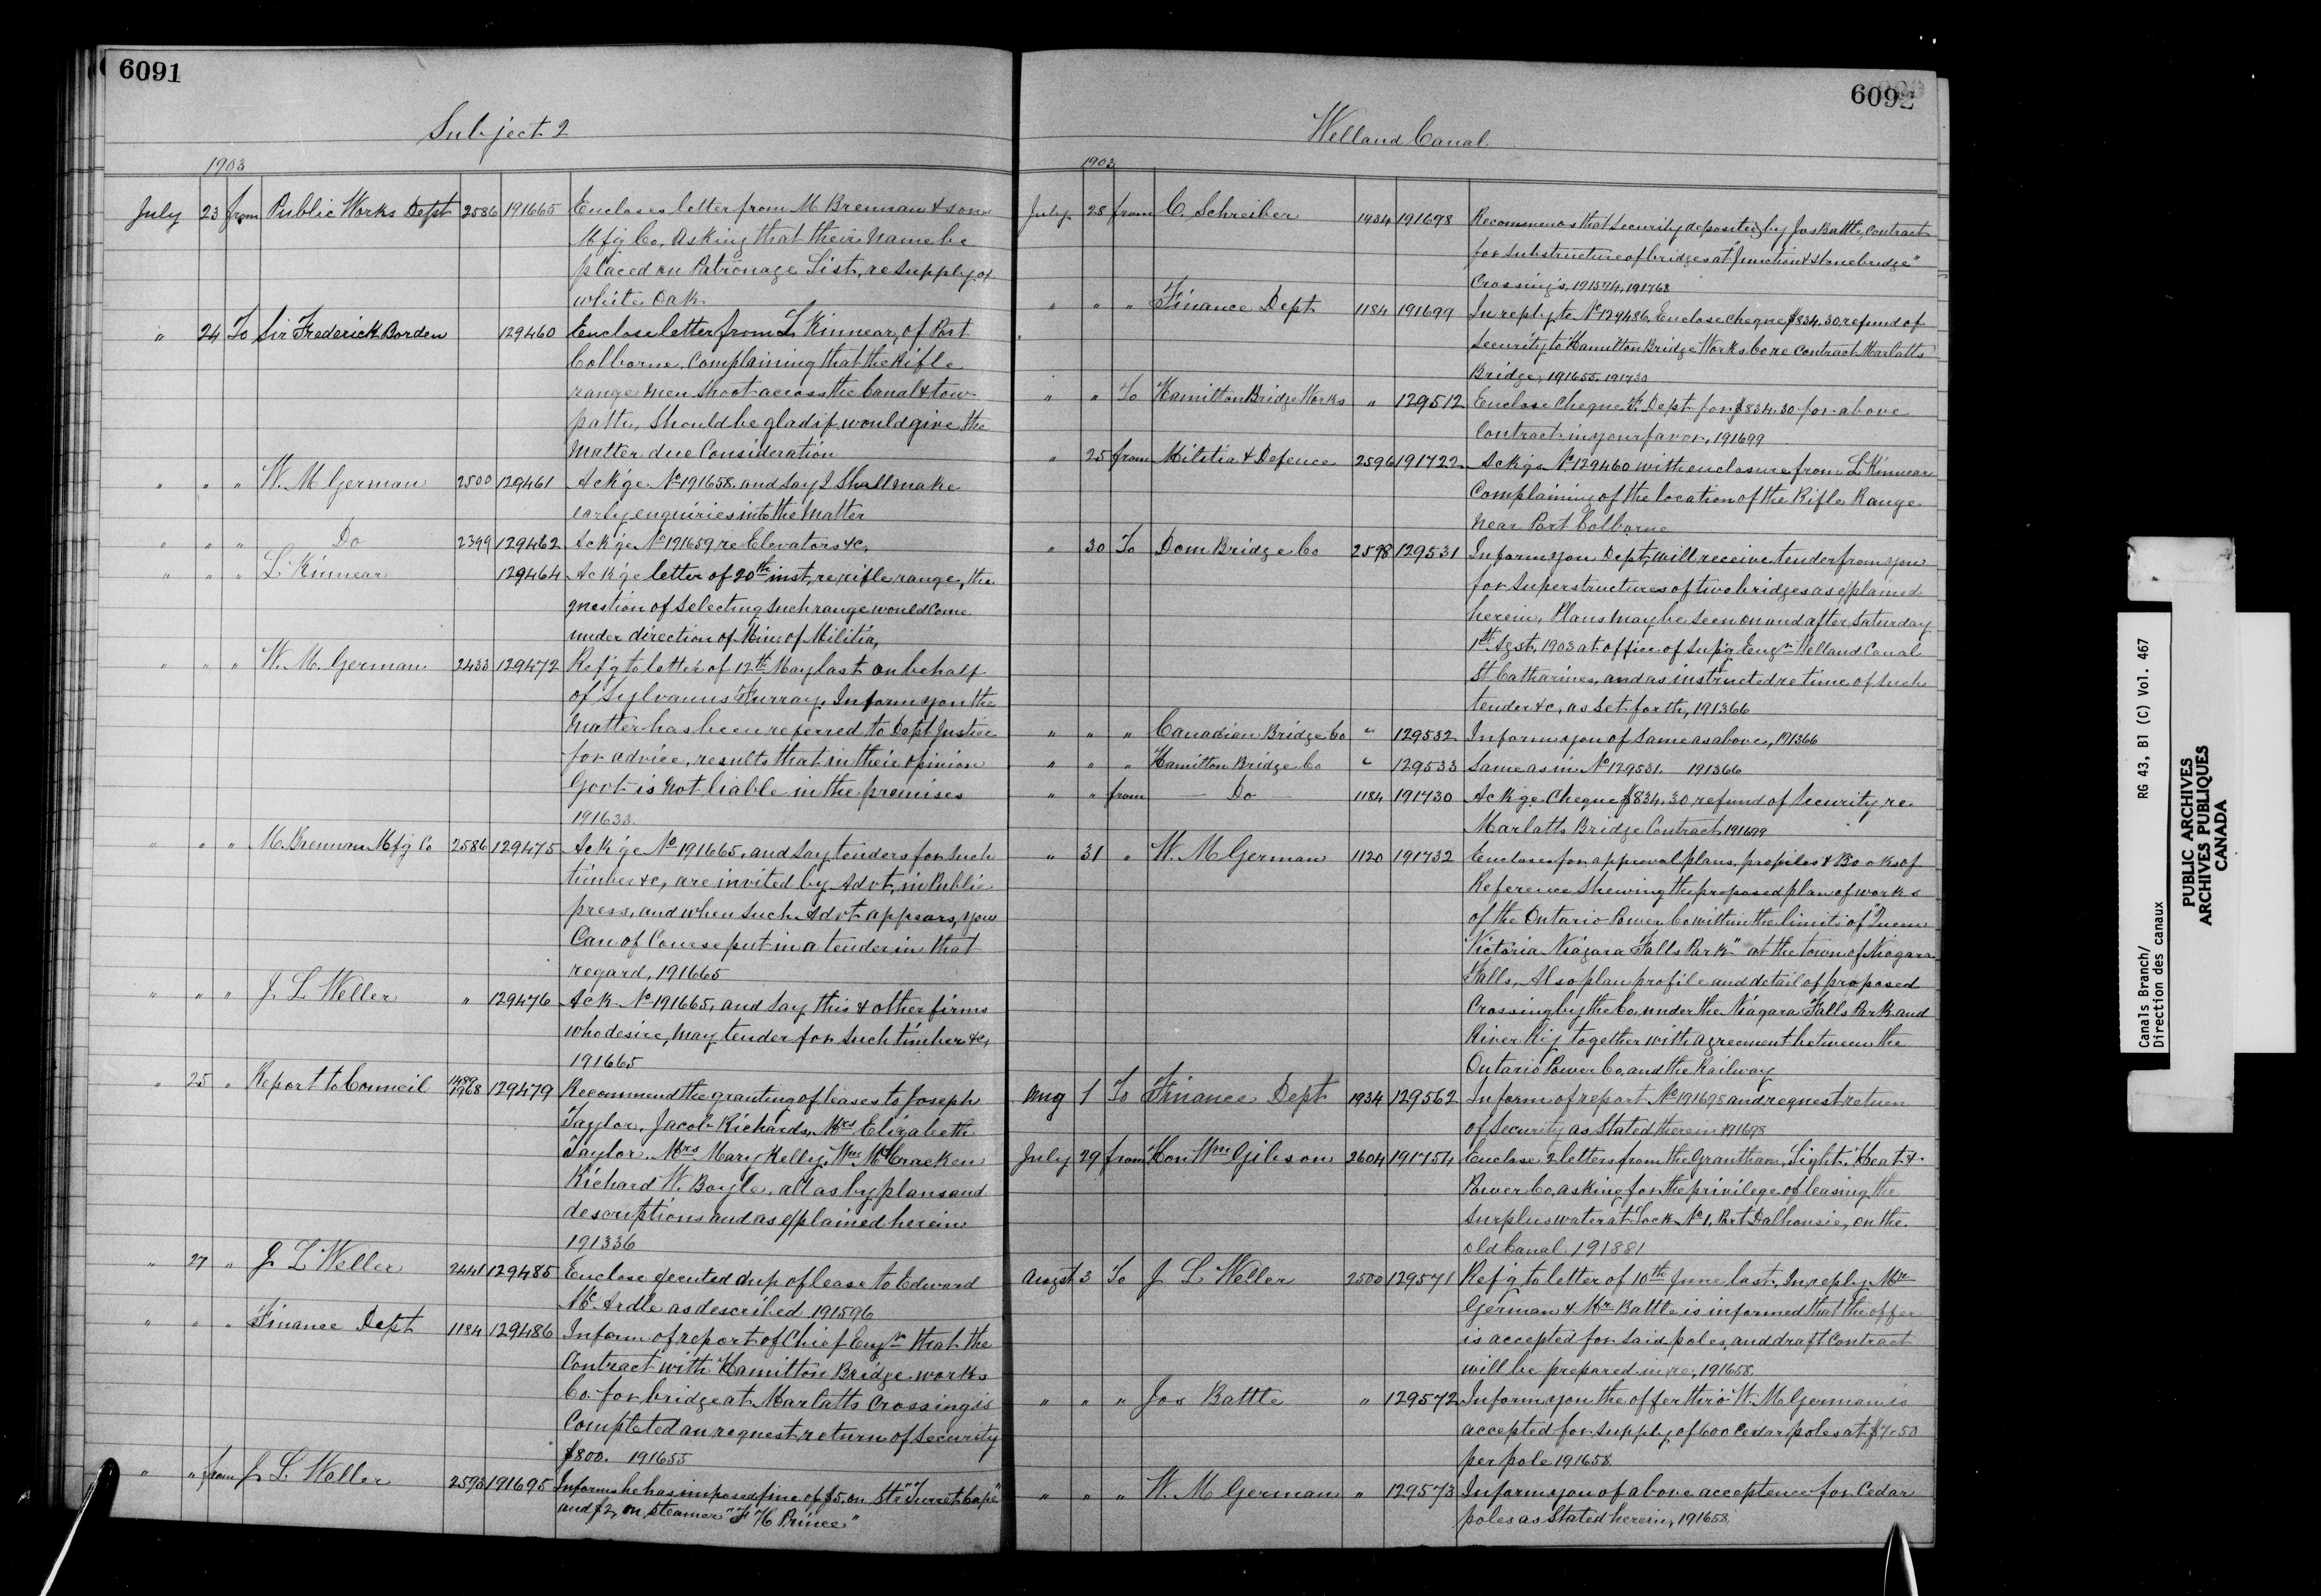 6091
Subject 2
1903
July 23 from Public Works Dept 2586 191665 Encloses letter from M Brennan & sons
Mfg Co, asking that their name be
placed on Patronage List, re supply of
white Oak
" 24 To Sir Frederick Borden 129460 Enclose letter from L Kinnear, of Port
Colborne, Complaining that the Rifle
range men shoot across the Canal & tow
path, should be glad if would give the
matter due Consideration
" " " W. M German 2500 129461 Ack'ge No 191658 and say I shall make
early enquiries into the matter
" " " Do 2399 129462 Ack'ge No 191659 re Elevators &c,
" " " L Kinnear 129464 Ack'ge letter of 20th inst, re rifle range, the
question of selecting such range would come
under direction of Mins of Militia,
" " " W. M. German 2433 129472 Ref'g to letter of 12th May last on behalf
of Sylvanus Furray, Inform you the
matter has been referred to Dept Justice
for advice, results that in their opinion
Govt is not liable in the premises
191633
" " " M. Brennan Mfg Co 2586 129475 Ack'ge No 191665, and say tenders for such
timber &c, are invited by Advt, in Public
press, and when such Advt appears, you
Can of Course put in a tender in that
regard, 191665
" " " J L Weller " 129476 Ack No 191665, and say this & other firms
who desire, may tender for such timber &c,
191665
" 25 " Report to Council 1489 1968 129479 Recommend the granting of leases to Joseph
Taylor, Jacob Richards, Mrs Elizabeth
Taylor, Mrs Mary Kelly, Wm McCracken
Richard W. Boyle, all as by plans and
descriptions and as explained herein
191336
" 27 " J L Weller 2441 129485 Enclose executed dup of lease to Edward
McArdle as described 191596
" " " Finance Dept 1184 129486 Inform of report of Chief Engr that the
Contract with Hamilton Bridge works
Co. for bridge at Marlatts Crossing is
Completed an request return of Security
$800. 191655
" " from J L Weller 2593 191695 Informs he has imposed fine of $5, on Str "Turret Cape"
and $2, on steamer "F H Prince"
6092
Welland Canal
1903
July 28 from C. Schreiber 1934 191698 Recommends that Security deposited by Jos Battle, Contract
for substructure of bridges at "Junction & Stonebridge"
Crossings, 191574, 191768
" " " Finance Dept 1184 191699 In reply to No 129486, Enclose cheque $834.30 refund of
Security to Hamilton Bridge Works Co re Contract Marlatts
Bridge, 191655, 191730
" " To Hamilton Bridge Works " 129512 Enclose Cheque F. Dept for $834.30 for above
Contract in your favor, 191699
" 25 from Militia & Defence 2596 191722 Ack'ge No 129460 with enclosure from L Kinnear
Complaining of the location of the Rifle Range
near Port Colborne
" 30 To Dom Bridge Co 2598 129531 Inform you Dept, will receive tender from you
for superstructures of two bridges as explained
herein, Plans may be seen on and after Saturday
1st Agst, 1903 at office of Sup'g Engr Welland Canal
St Catharines, and as instructed re time of such
tender &c, as set forth, 191366
" " " Canadian Bridge Co " 129532 Inform you of same as above, 191366
" " " Hamilton Bridge Co " 129533 Same as in No 129531. 191366
" " from Do 1184 191730 Ack'ge Cheque $834.30 refund of Security re
Marlatts Bridge Contract 191699
" 31 " W. M German 1120 191732 Encloses for approval plans, profiles & Books of
Reference shewing the proposed plan of works
of the Ontario Power Co within the limits of "Queen
Victoria Niagara Falls Park" at the town of Niagara
Falls, Also plan profile and detail of proposed
Crossing by the Co, under the Niagara Falls Park and
River Ry together with agreement between the
Ontario Power Co, and the Railway
Aug 1 To Finance Dept 1934 129562 Inform of report No 191698 and request return
of Security as stated therein 191698
July 29 from Hon Wm Gibson 2604 191754 Enclose 2 letters from the Grantham, Light, Heat &
Power Co, asking for the privilege of leasing the
surplus water at Lock No 1, Port Dalhousie, on the
old Canal 191881
Augst 3 To J L Weller 2500 129571 Ref'g to letter of 10th June last, In reply, Mr
German & Mr Battle is informed that the offer
is accepted for said poles, and draft Contract
will be prepared in re, 191658
" " " Jos Battle " 129572 Inform you the offer thro' W. M German is
accepted for supply of 600 Cedar poles at $7.50
per pole 191658
" " " W. M German " 129573 Inform you of above acceptence for Cedar
poles as stated herein, 191658
Canals Branch/
Direction des canaux
RG 43, B1 (C) Vol. 467
PUBLIC ARCHIVES
ARCHIVES PUBLIQUES
CANADA